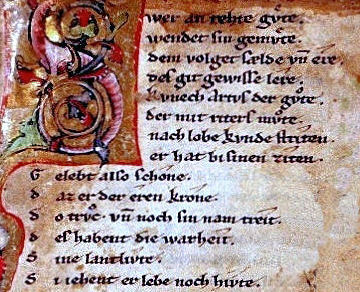 Swer an rehte gvͦte.
wendet sin gemvͤte.
dem volget sælde vn̄ ere.
des git gewisse lere.
kvnech artvs der gvͦte.
der mit riters mvͦte.
nach lobe kvnde striten.
er hat bi sinen ziten.
Gelebt also schone.
daz er der eren krone.
do trvͦc. vn̄ noch sin nam treit.
des habent die warheit.
Sine lantlivte.
Si iehent er lebe noch hivte.